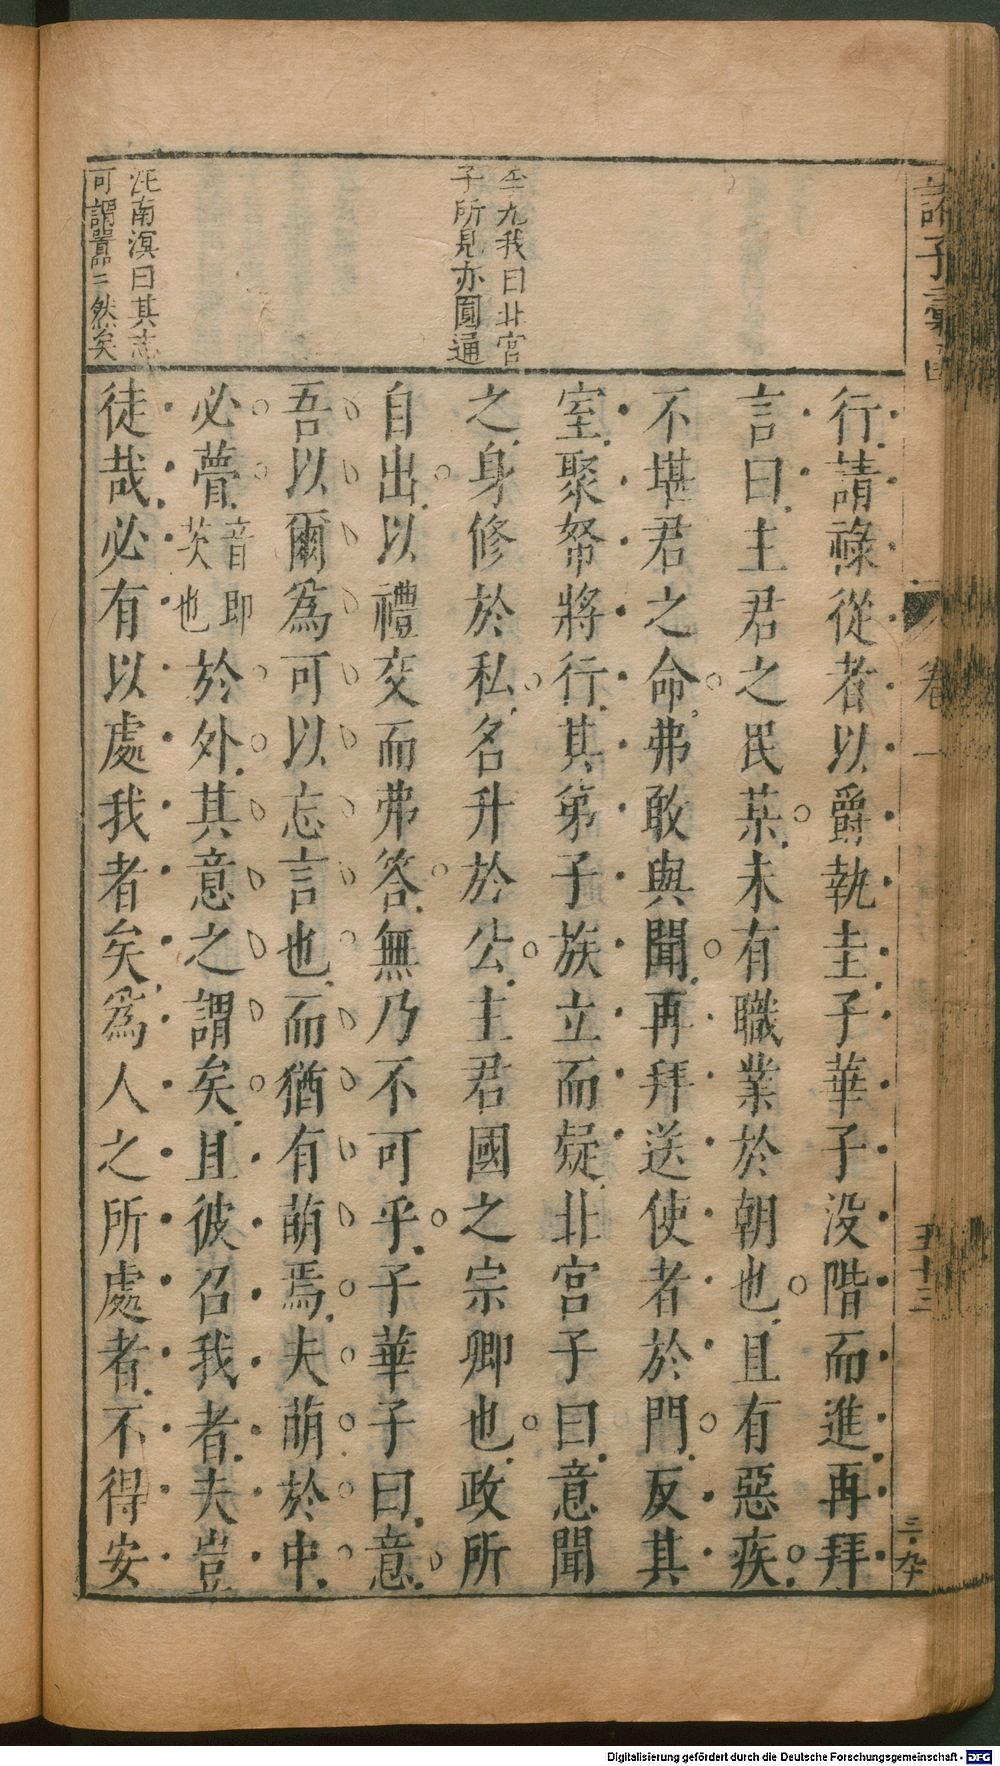 諸子彙函
卷一
五十三
三九
行請祿從者以爵執圭子華子沒階而進再拜
言曰主君之民某未有職業於朝也且有惡疾
不堪君之命弗敢與聞再拜送使者於門反其
室聚帑將行其第子族立而疑北宮子曰意聞
之身修於私名升於公主君國之宗卿也政所
自出以禮交而弗答無乃不可乎子華子曰意
吾以爾為可以忘言也而猶有萌焉夫萌於中
必薺音即茨也於外其意之謂矣且彼召我者夫豈
徒哉必有以處我者矣為人之所處者不得安
李九我曰北宮
子所見亦圓通
汪南溟曰其志
可謂囂二然矣
Digitalisierung gefördert durch die Deutsche Forschungsgemeinschaft - DFG